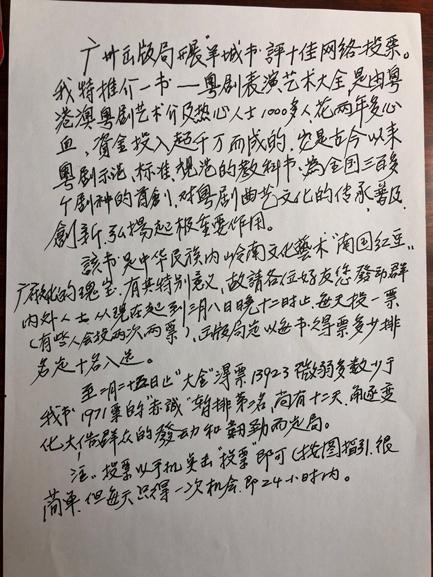 广州出版局开展"羊城书"評十佳网络投票。
我特推介一书——粤剧表演艺术大全是由粤
港澳粤剧艺术介及热心人士1000多人花两年多心
血,資金投入起千万而成的,它是古今以来
粤剧示范、标准、規范的教科书,為全国三百多
个剧种的首創,对粤剧曲艺文化的传承、普及、
創新、弘揚起极重要作用。
該书是中华民族内岭南文化藝术"南国红豆"
广府文化的瑰宝,有其特别意义,敬請各位好友您發动群
内外人士从現在起到三月八日晚十二时止,每天投一票
(有些人会投两次,两票),出版局定以每书得票多少排
名定十名入选。
至二月二十五日止"大全"得票13923微弱多数少于
我书1971票的"赤诚"暫排第二名,尚有十二天,角逐变
化大,借群众的發动和翻動而定局。
注:投票以手机点击"投票"即可(按图指引,很
简单,但每天只得一次机会,即24小时内。